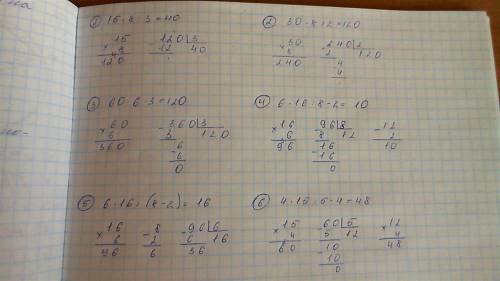 ① 15 · 8 : 3 = 40
× 15
8
120
- 120 | 3
12 40
② 30 · 8 : 2 = 120
× 30
8
240
- 240 | 2
2 120
- 4
4
③ 60 · 6 : 3 = 120
× 60
6
360
- 360 | 3
3 120
- 6
6
0
④ 6 · 16 : 8 - 2 = 10
× 16
6
96
- 96 | 8
8 12
- 16
16
0
- 12
2
10
⑤ 6 · 16 : (8 - 2) = 16
× 16
6
96
- 8
2
6
- 96 | 6
6 16
36
⑥ 4 · 15 : 5 · 4 = 48
× 15
4
60
- 60 | 5
5 12
- 10
10
0
× 12
4
48